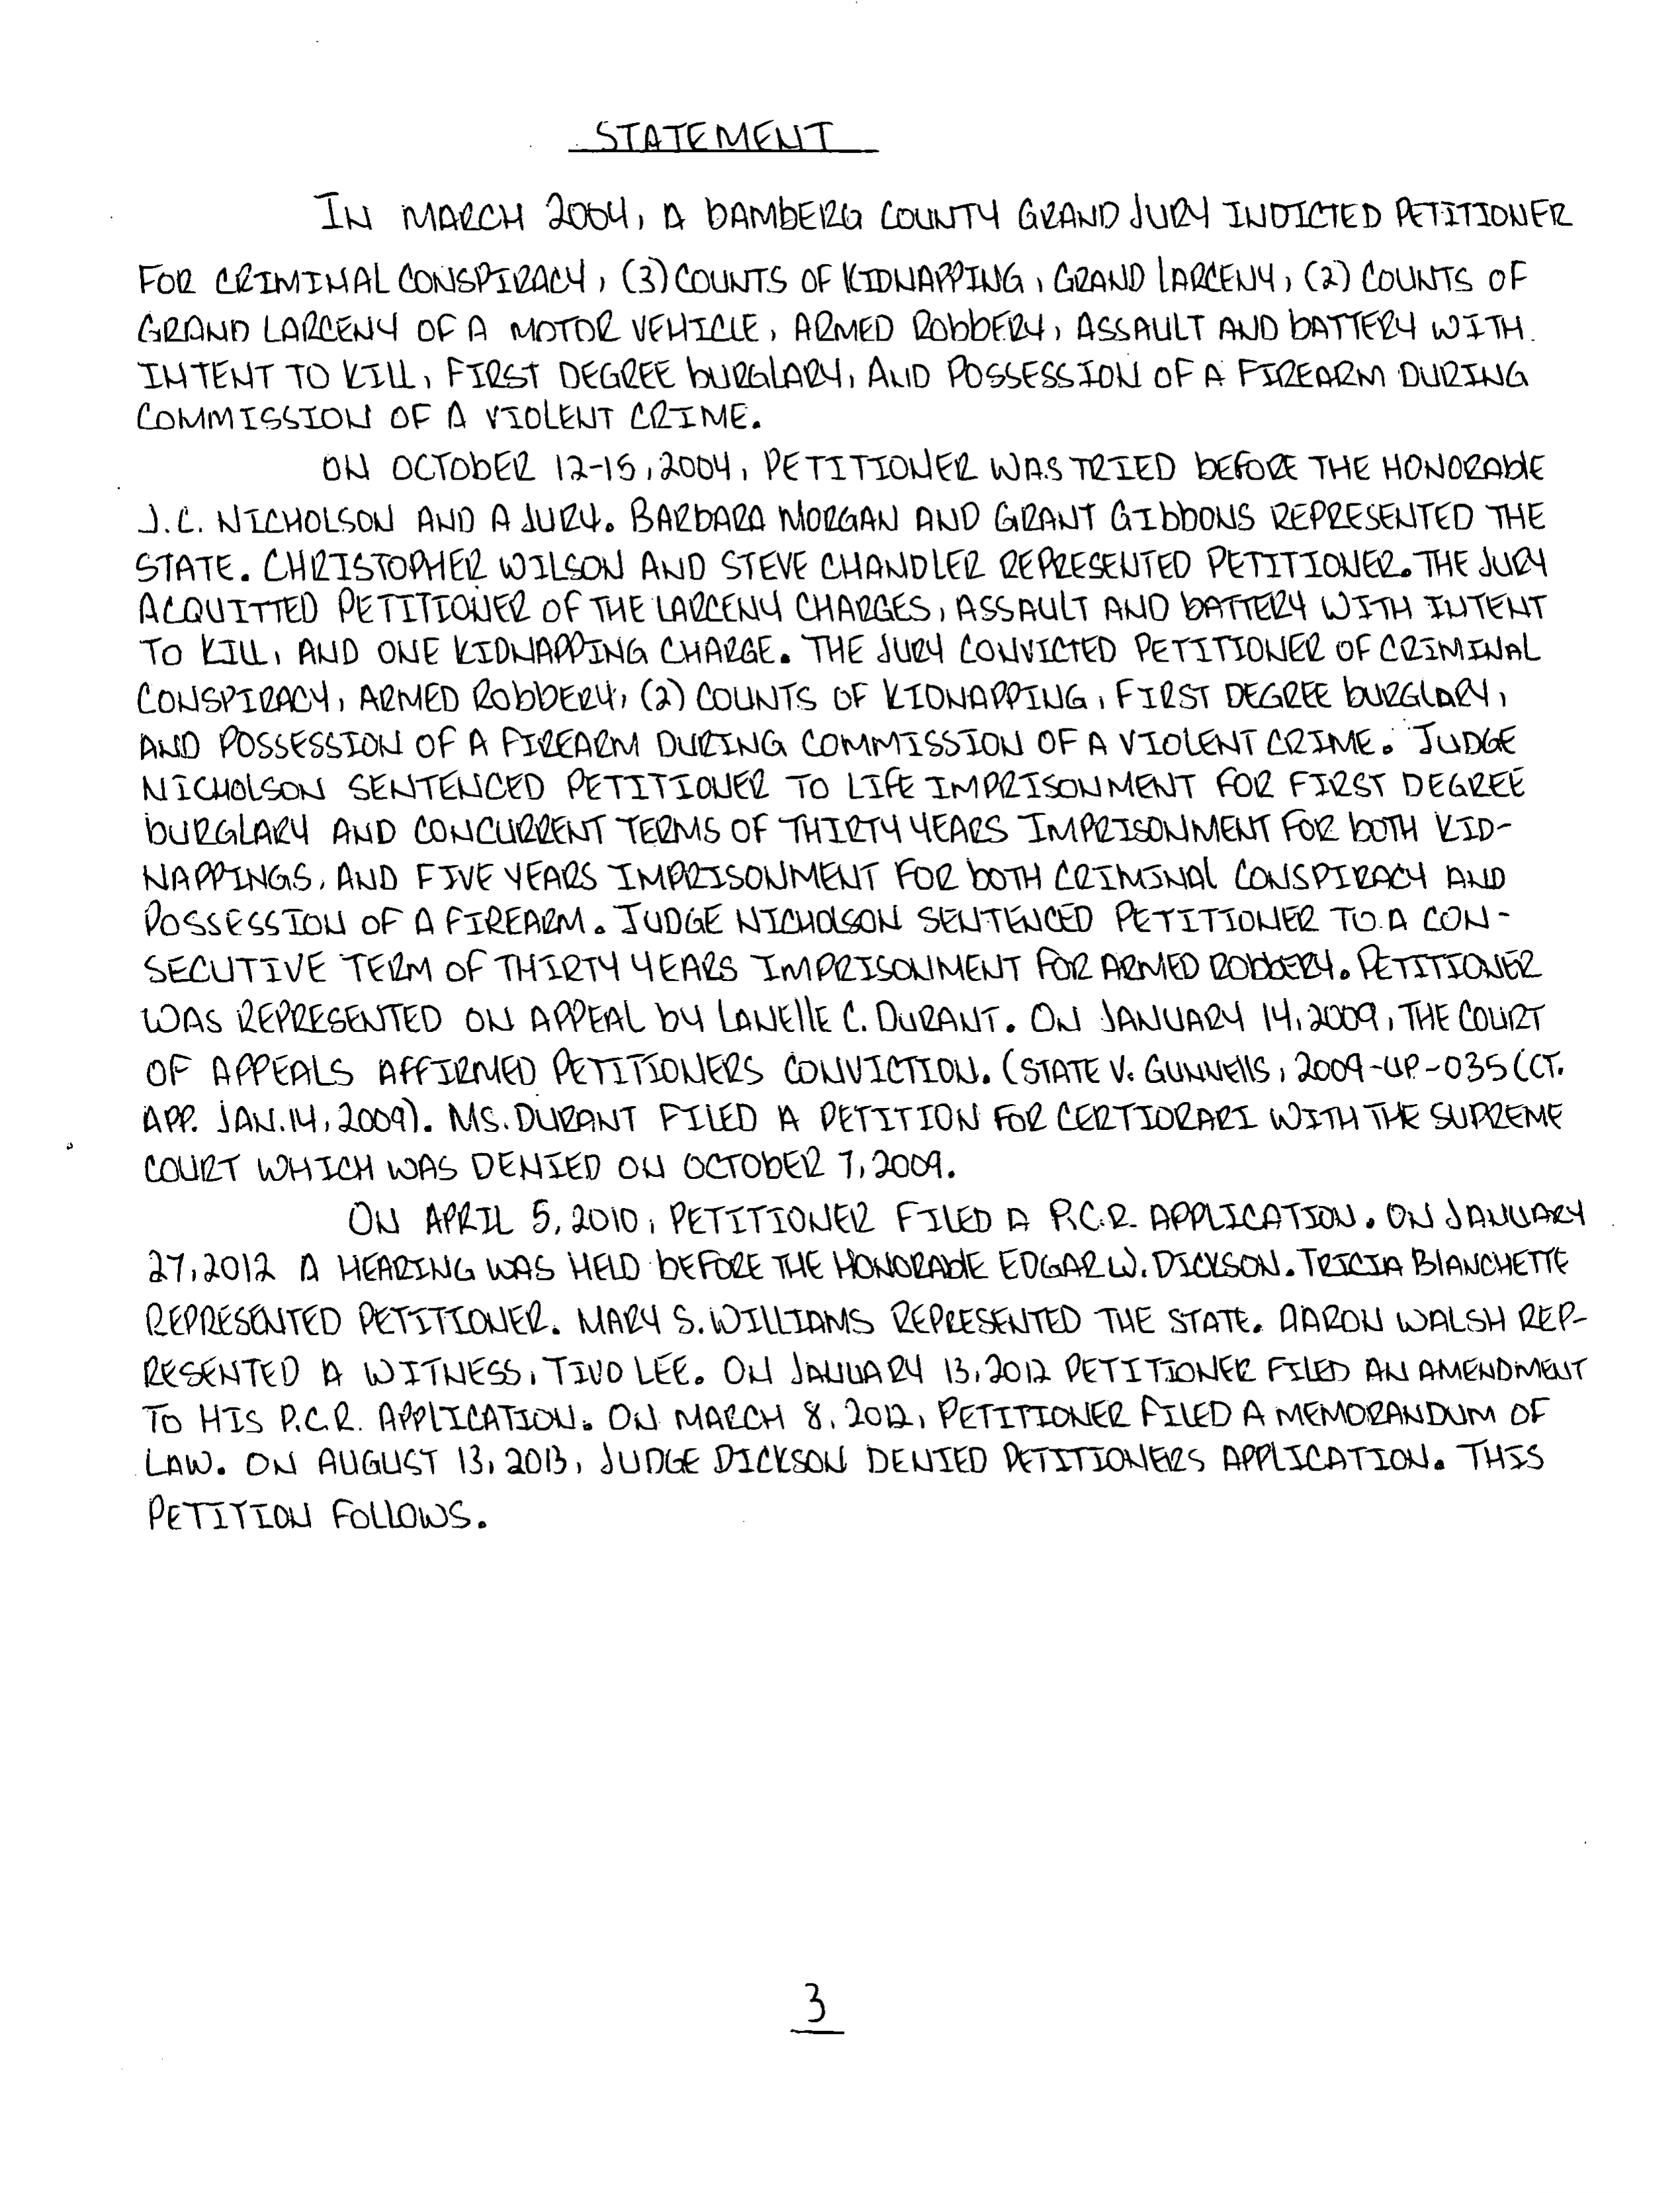 STATEMENT
IN MARCH 2004, A BAMBERG COUNTY GRAND JURY INDICTED PETITIONER
FOR CRIMINAL CONSPIRACY, (3) COUNTS OF KIDNAPPING, GRAND LARCENY, (2) COUNTS OF
GRAND LARCENY OF A MOTOR VEHICLE, ARMED ROBBERY, ASSAULT AND BATTERY WITH
INTENT TO KILL, FIRST DEGREE BURGLARY, AND POSSESSION OF A FIREARM DURING
COMMISSION OF A VIOLENT CRIME.
ON OCTOBER 12-15, 2004, PETITIONER WAS TRIED BEFORE THE HONORABLE
J.C. NICHOLSON AND A JURY. BARBARA MORGAN AND GRANT GIBBONS REPRESENTED THE
STATE. CHRISTOPHER WILSON AND STEVE CHANDLER REPRESENTED PETITIONER. THE JURY
ACQUITTED PETITIONER OF THE LARCENY CHARGES, ASSAULT AND BATTERY WITH INTENT
TO KILL, AND ONE KIDNAPPING CHARGE. THE JURY CONVICTED PETITIONER OF CRIMINAL
CONSPIRACY, ARMED ROBBERY, (2) COUNTS OF KIDNAPPING, FIRST DEGREE BURGLARY,
AND POSSESSION OF A FIREARM DURING COMMISSION OF A VIOLENT CRIME. JUDGE
NICHOLSON SENTENCED PETITIONER TO LIFE IMPRISONMENT FOR FIRST DEGREE
BURGLARY AND CONCURRENT TERMS OF THIRTY YEARS IMPRISONMENT FOR BOTH KID-
NAPPINGS, AND FIVE YEARS IMPRISONMENT FOR BOTH CRIMINAL CONSPIRACY AND
POSSESSION OF A FIREARM. JUDGE NICHOLSON SENTENCED PETITIONER TO A CON-
SECUTIVE TERM OF THIRTY YEARS IMPRISONMENT FOR ARMED ROBBERY. PETITIONER
WAS REPRESENTED ON APPEAL BY LANELLE C. DURANT. ON JANUARY 14, 2009, THE COURT
OF APPEALS AFFIRMED PETITIONERS CONVICTION. (STATE V. GUNNELLS, 2009-UP-035 (CT.
APP. JAN. 14, 2009). MS. DURANT FILED A PETITION FOR CERTIORARI WITH THE SUPREME
COURT WHICH WAS DENIED ON OCTOBER 7, 2009.
ON APRIL 5, 2010, PETITIONER FILED A P.C.R. APPLICATION. ON JANUARY
27, 2012 A HEARING WAS HELD BEFORE THE HONORABLE EDGAR W. DICKSON. TRICIA BLANCHETTE
REPRESENTED PETITIONER. MARY S. WILLIAMS REPRESENTED THE STATE. AARON WALSH REP-
RESENTED A WITNESS, TIVO LEE. ON JANUARY 13, 2012 PETITIONER FILED AN AMENDMENT
TO HIS P.C.R. APPLICATION. ON MARCH 8, 2012, PETITIONER FILED A MEMORANDUM OF
LAW. ON AUGUST 13, 2013, JUDGE DICKSON DENIED PETITIONERS APPLICATION. THIS
PETITION FOLLOWS.
3